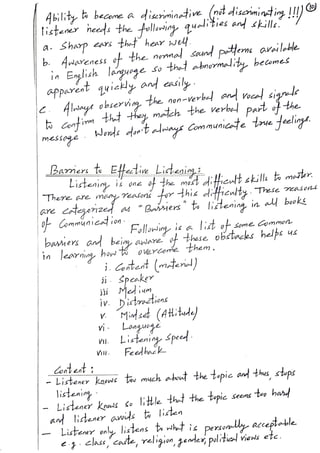 Ability to become a discriminative (not discriminating !!!)
listener needs the following qualities and skills.
a. Sharp ears that hear well.
b. Awareness of the normal sound patterns available
in English language so that abnormality becomes
apparent quickly and easily.
c. Always observing the non-verbal and vocal signals
to confirm that they match the verbal part of the
message. Words don't always communicate true feelings.
Barriers to Effective Listening:
Listening is one of the most difficult skills to master.
There are many reasons for this difficulty. These reasons
are categorized as "Barriers" to listening in all books
of Communication.
Following is a list of some common
barriers and being aware of these obstacles helps us
in learning how to overcome them.
i. Content (material)
ii. Speaker
iii Medium
iv. Distractions
v. Mindset (Attitude)
vi. Language
vii. Listening Speed.
viii. Feedback
Content:
- Listener knows too much about the topic and thus, stops
listening.
- Listener knows so little that the topic seems too hard
and listener avoids to listen
- Listener only listens to what is personally acceptable
e.g. class, caste, religion, gender, political views etc.